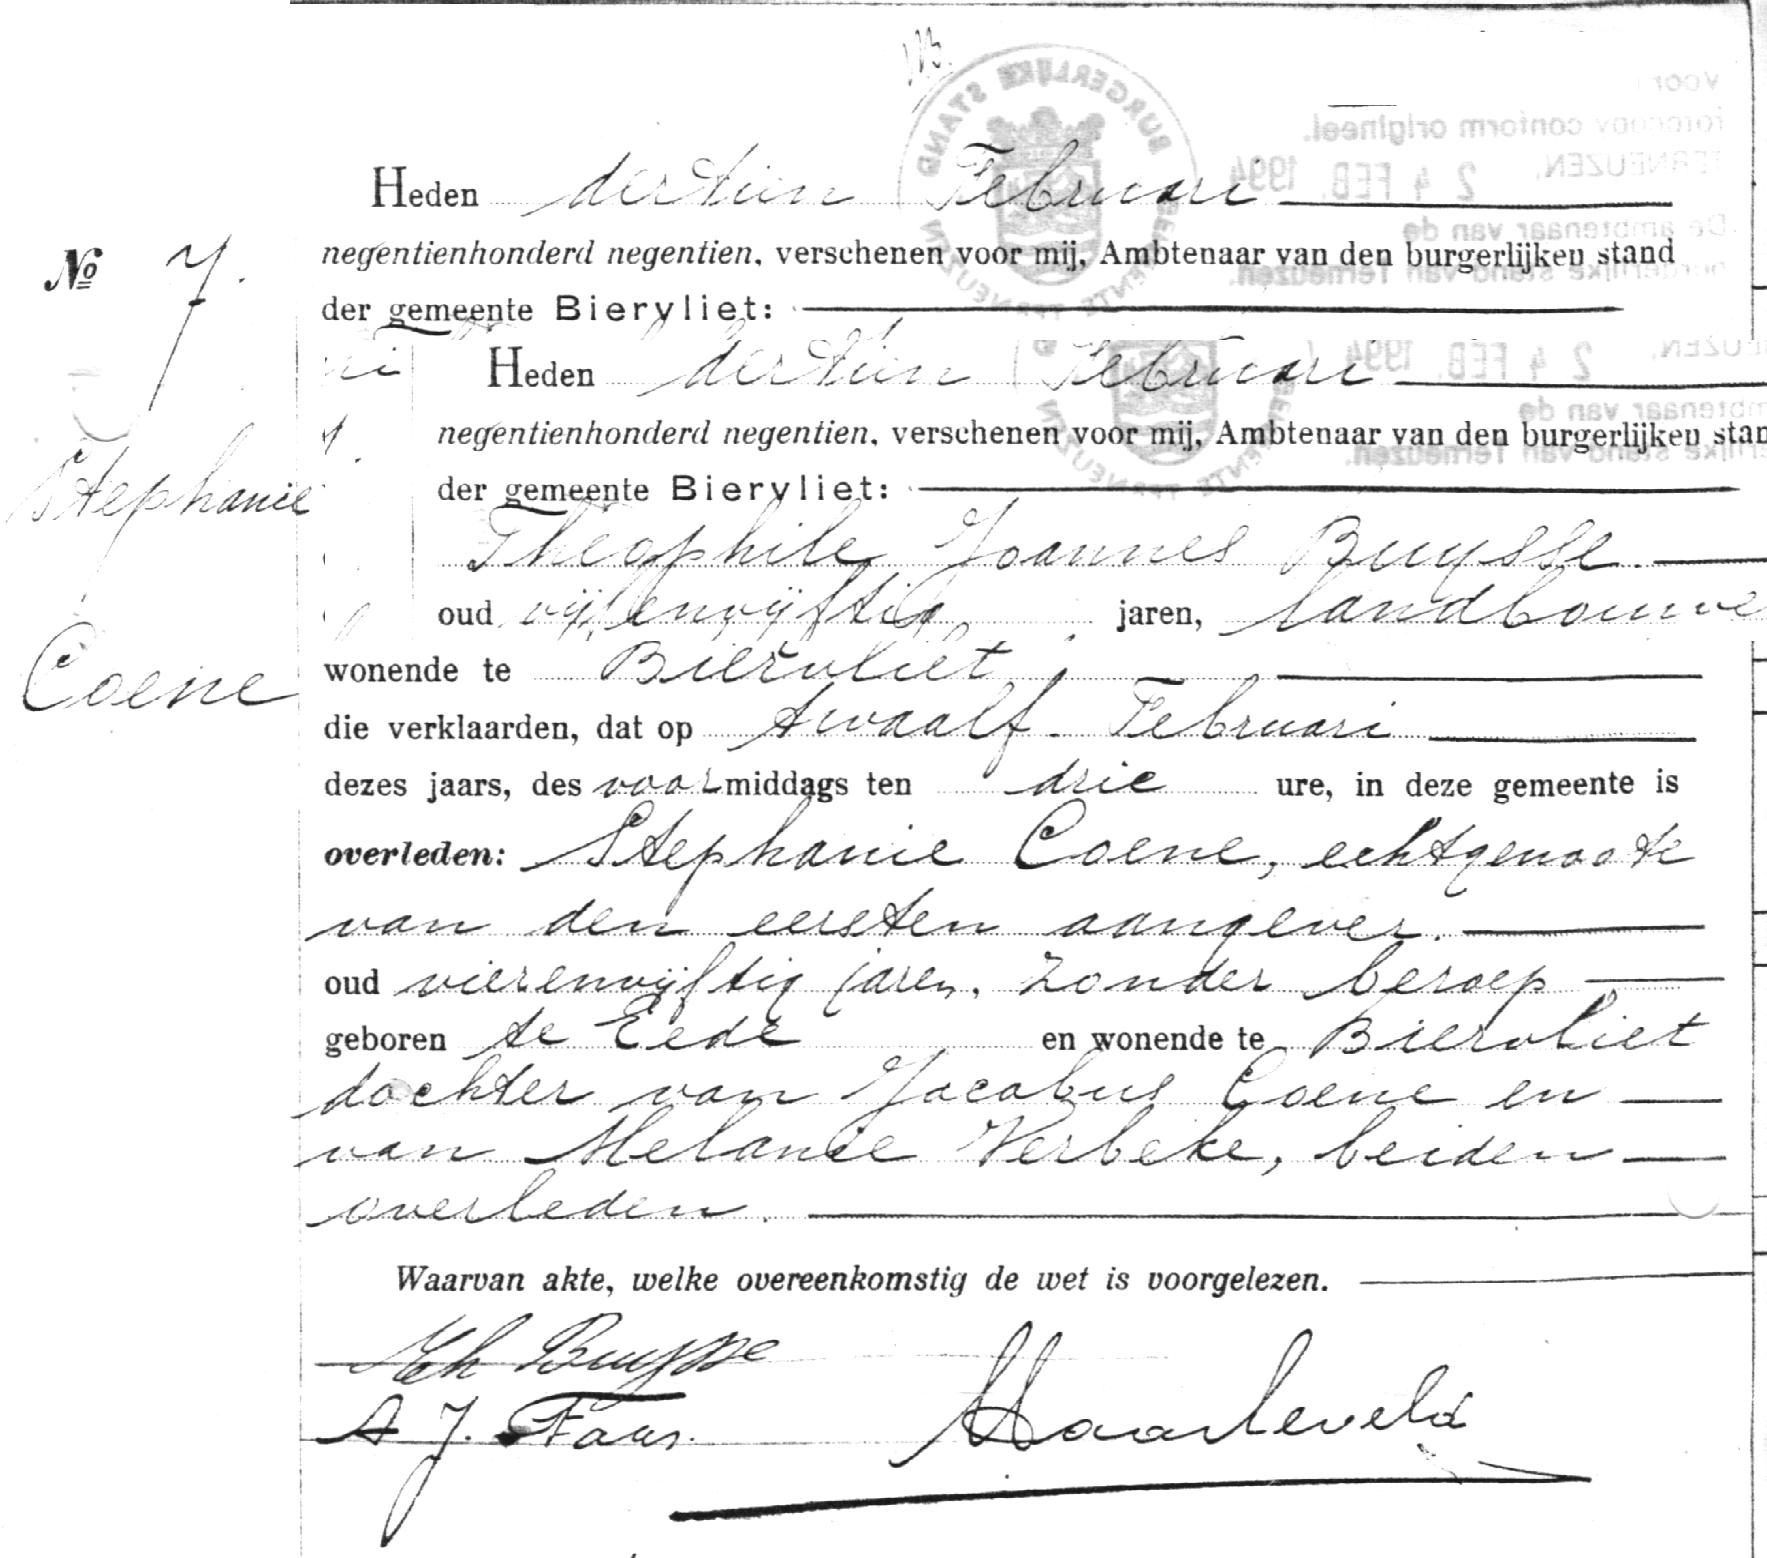 Heden dertien Februari
negentienhonderd negentien, verschenen voor mij, Ambtenaar van den burgerlijken stand
der gemeente Biervliet:
Nº 7.
Stephanie
Coene
Heden dertien Februari
negentienhonderd negentien, verschenen voor mij, Ambtenaar van den burgerlijken stan
der gemeente Biervliet:
Theophile Joannes Buysse.
oud vijfenvijftig jaren, landbouwe
wonende te Biervliet
die verklaarden, dat op twaalf Februari
dezes jaars, des voormiddags ten drie ure, in deze gemeente is
overleden: Stephanie Coene, echtgenoote
van den eersten aangever.
oud vierenvijftig jaren, zonder beroep
geboren te Eede en wonende te Biervliet
dochter van Jacobus Coene en
van Melanie Verbeke, beiden
overleden.
Waarvan akte, welke overeenkomstig de wet is voorgelezen.
Th Buysse
A J. Faas.
Haarleveld
BURGERLIJKE STAND
GEMEENTE TERNEUZEN
Voor
fotocopy conform origineel.
TERNEUZEN, 24 FEB. 1994
De ambtenaar van de
burgerlijke stand van Terneuzen.
24 FEB. 1994